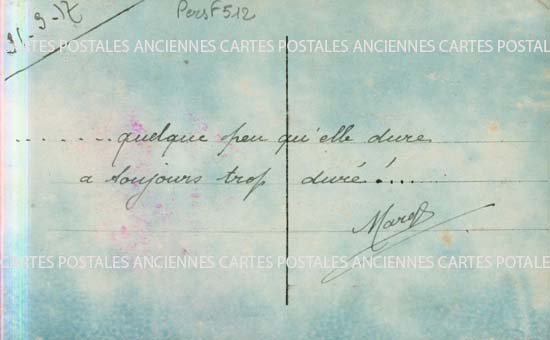 PersF512
CARTES POSTALES ANCIENNES CARTES POSTALES ANCIENNES CARTES POSTALES
........quelque peu qu'elle dure
a toujours trop duré!...
CARTES POSTALES ANCIENNES CARTES POSTALES ANCIENNES CARTES POTALES